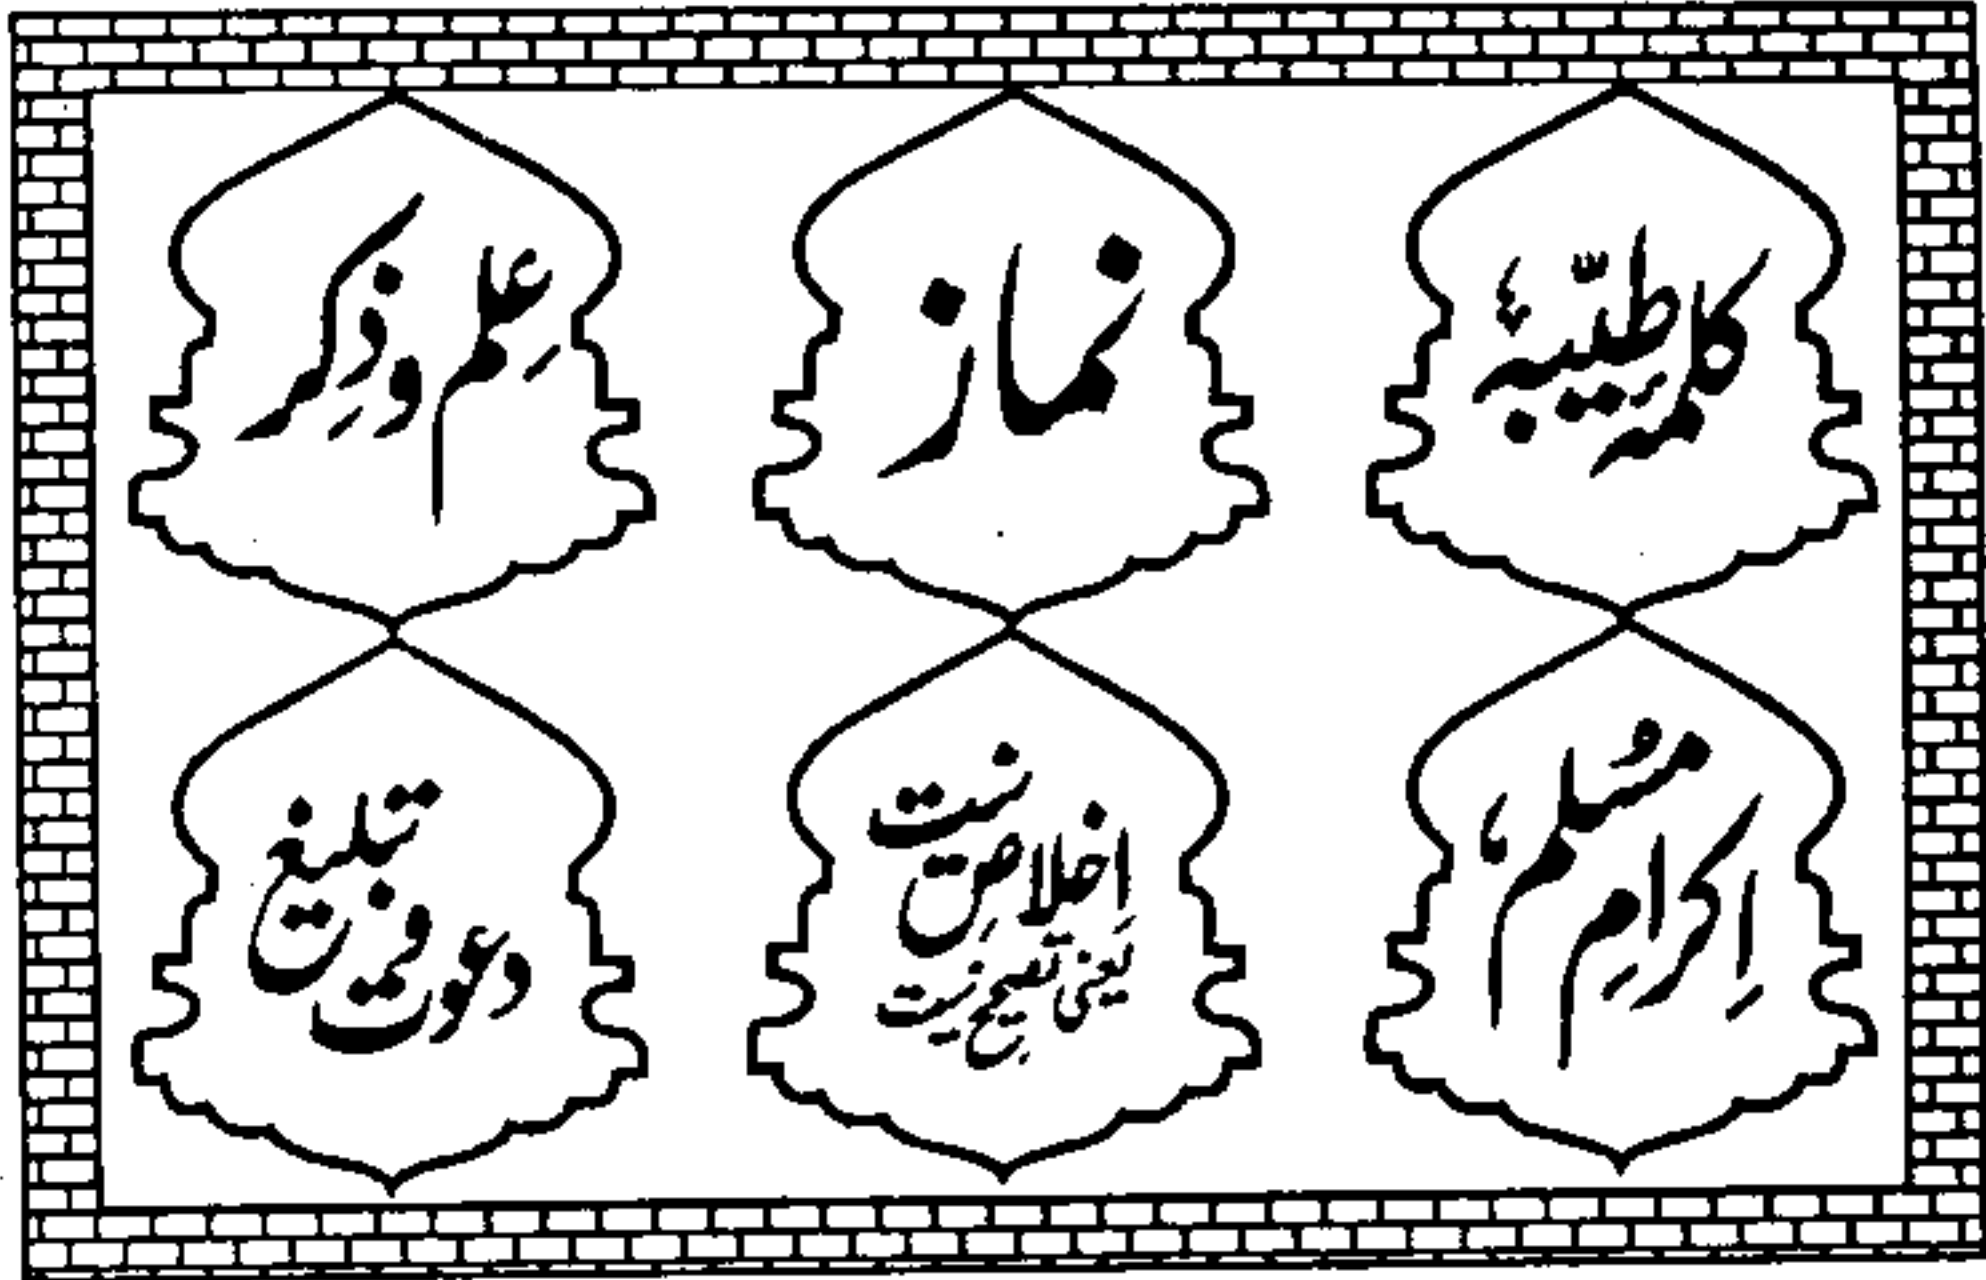 کلمہ طیّبہ؛
نماز
عِلم و ذِکر
اِکرامِ مُسلم،
اخلاصِ نیت
یعنی تصحیحِ نیت
دعوت و تبلیغ